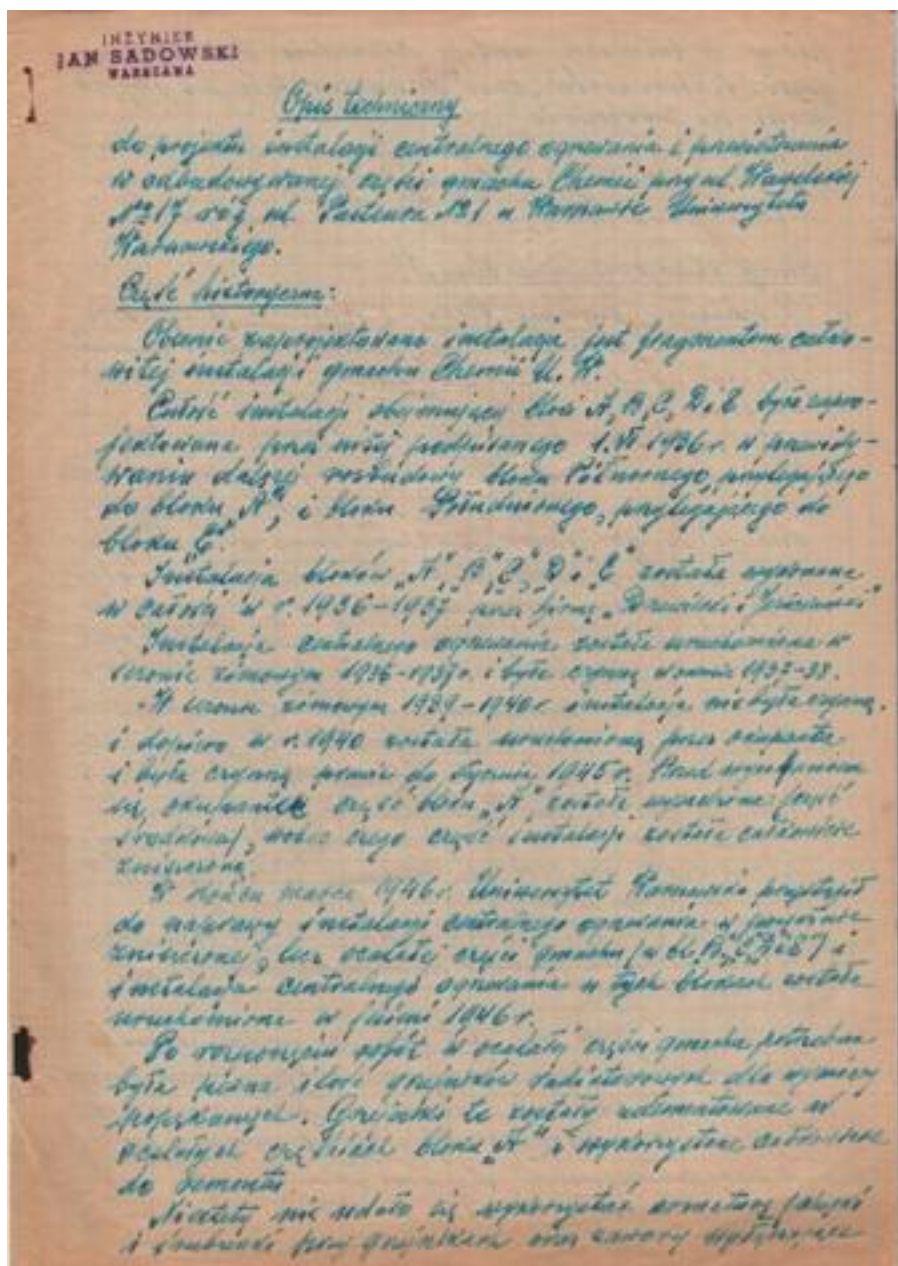 INŻYNIER
JAN SADOWSKI
WARSZAWA
Opis techniczny
do projektu instalacji centralnego ogrzewania i przewietrzania
w odbudowywanej części gmachu Chemii przy ul. Wawelskiej
№ 17 róg ul. Pasteura № 1 w Warszawie Uniwersytetu
Warszawskiego.
Część historyczna:
Obecnie zaprojektowana instalacja jest fragmentem całko-
witej instalacji gmachu Chemii U. W.
Całość instalacji obejmującej bloki A, B, C, D i E była zapro-
jektowana przez niżej podpisanego 1.VI 1936 r. w przewidy-
waniu dalszej rozbudowy bloku Północnego, przylegającego
do bloku „A”, i bloku Południowego, przylegającego do
bloku
Instalacja bloków „A”, „B”, „C”, „D” i „E” została wykonana
w całości w r. 1936-1937 przez firmę
Instalacja centralnego ogrzewania została uruchomiona w
sezonie zimowym 1936-1937 r. i była czynną 1937-38.
W sezonie zimowym 1939-1940 r. instalacja nie była czynną,
i dopiero w r. 1940 została uruchomioną przez okupanta
i była czynną prawie do stycznia 1945 r. Przed wycofaniem
się okupanta część bloku „A” została wysadzona (część
środkowa), wobec czego część instalacji została całkowicie
zniszczoną.
W końcu marca 1946 r. Uniwersytet Warszawski przystąpił
do naprawy instalacji centralnego ogrzewania w
zniszczonej, lecz ocalałej części gmachu (w bl. B, C, D i E) i
instalacja centralnego ogrzewania w tych blokach została
uruchomiona w 1946 r.
Po rozpoczęciu robót w ocalałej części gmachu potrzebna
była pewna ilość grzejników radiatorowych dla wymiany
popękanych. Grzejniki te zostały zdemontowane w
ocalałych częściach bloku „A” i wykorzystane całkowicie
do remontu
Niestety nie udało się wykorzystać armatury
i śrubunki przy grzejnikach oraz zawory